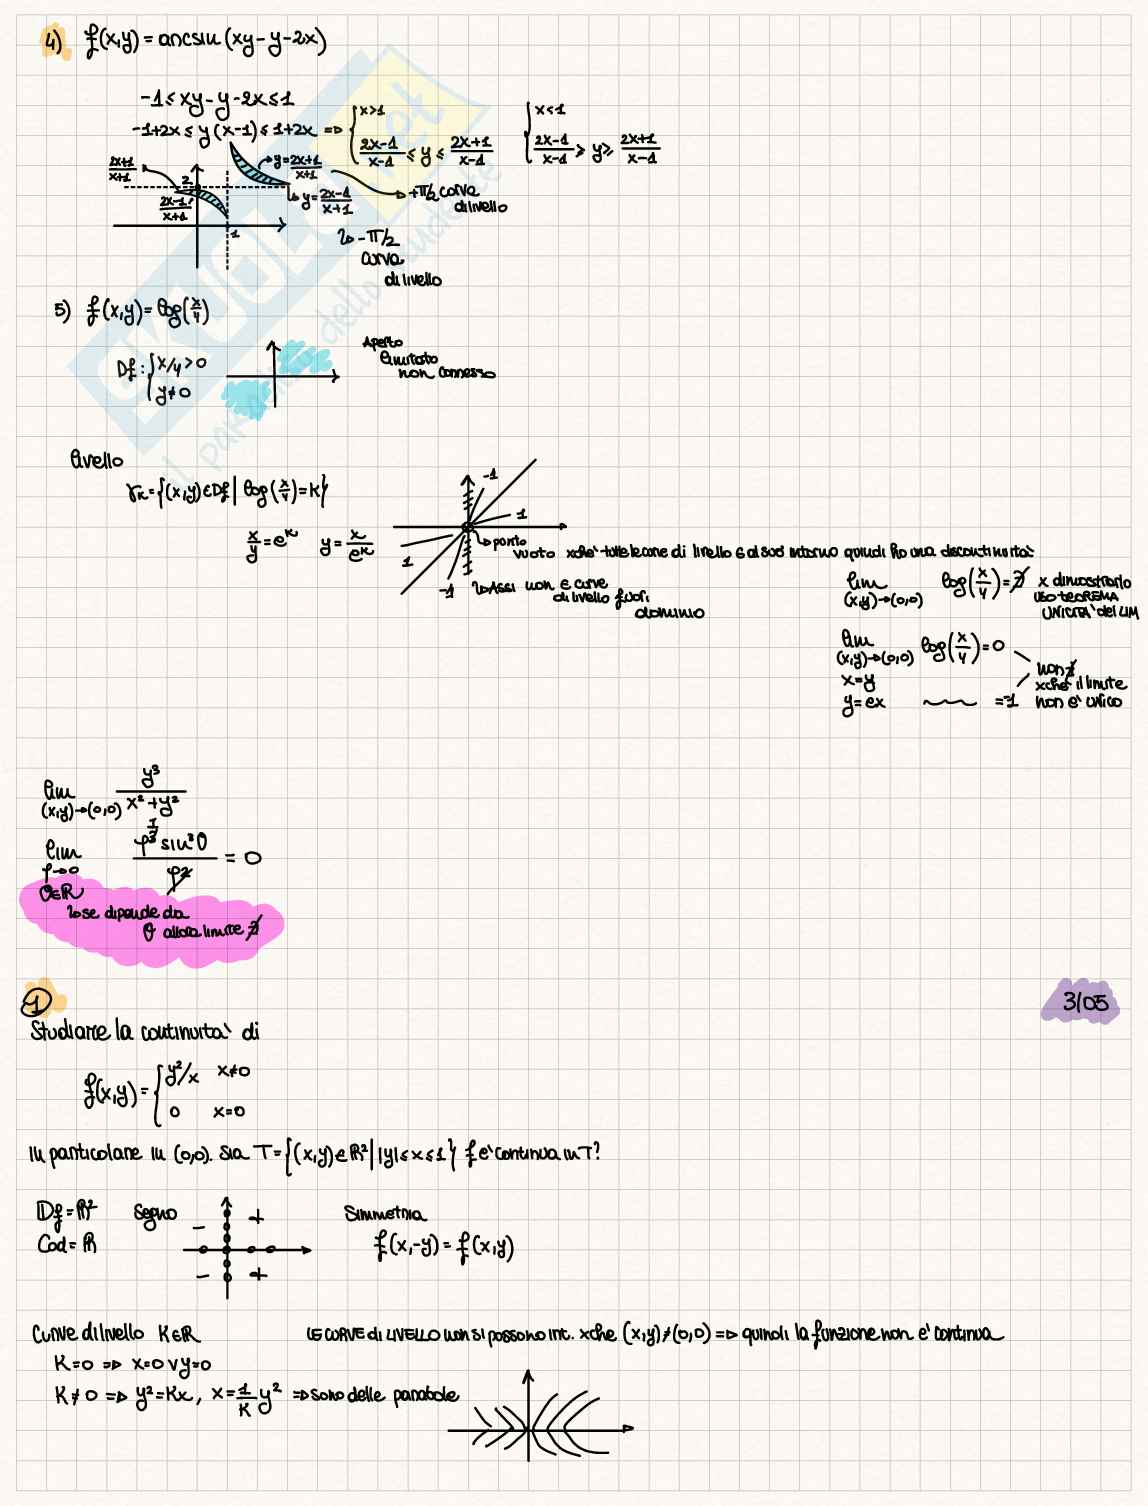 4) f(x,y) = arcsin (xy - y - 2x)
-1 ≤ xy - y - 2x ≤ 1
-1+2x ≤ y(x-1) ≤ 1+2x => { x>1 { x<1
2x-1/x-1 ≤ y ≤ 2x+1/x-1 2x-1/x-1 ≥ y ≥ 2x+1/x-1
2x+1/x+1 2 y = 2x+1/x+1
2x-1/x+1 y = 2x-1/x+1 +π/2 curva di livello
1
-π/2
curva
di livello
5) f(x,y) = log(x/y)
Df: { x/y > 0
y≠0
Aperto
limitato
non connesso
livello
γk = {(x,y)∈Df | log(x/y) = K}
x/y = e^k y = x/e^k
-1
1
1
-1
punto
vuoto xchè tutte le curve di livello al suo intorno quindi ho una discontinuità
Assi non è curve
di livello fuori
dominio
lim (x,y)→(0,0) log(x/y) = ∄ x dimostrarlo
uso teorema
UNICITA' del LIM
lim (x,y)→(0,0) log(x/y) = 0
x=y
y=ex = -1
non ∄
xchè il limite
non è unico
lim (x,y)→(0,0) y³/x²+y²
lim ρ→0 ρ³ sin³θ/ρ² = 0
θ∈R
se dipende da
θ allora limite ∄
1
3/05
Studiare la continuità di
f(x,y) = { y²/x x≠0
0 x=0
In particolare in (0,0). Sia T = {(x,y)∈R² | |y| ≤ x ≤ 1} f è continua in T?
Df = R² Segno Simmetria
Cod = R f(x,-y) = f(x,y)
- +
- +
Curve di livello K∈R LE CURVE di LIVELLO non si possono int. xche (x,y)≠(0,0) => quindi la funzione non è continua
K=0 => x=0 ∨ y=0
K≠0 => y²=Kx, x = 1/K y² => sono delle parabole
SKUOLA.net
il paradiso dello studente